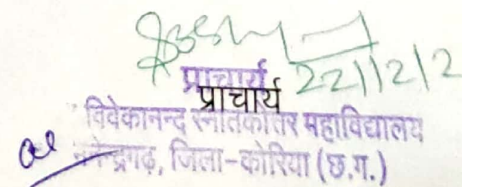 22/12/2
प्राचार्य
प्राचार्य
विवेकानन्द स्नातकोत्तर महाविद्यालय
मनेन्द्रगढ़, जिला-कोरिया (छ.ग.)